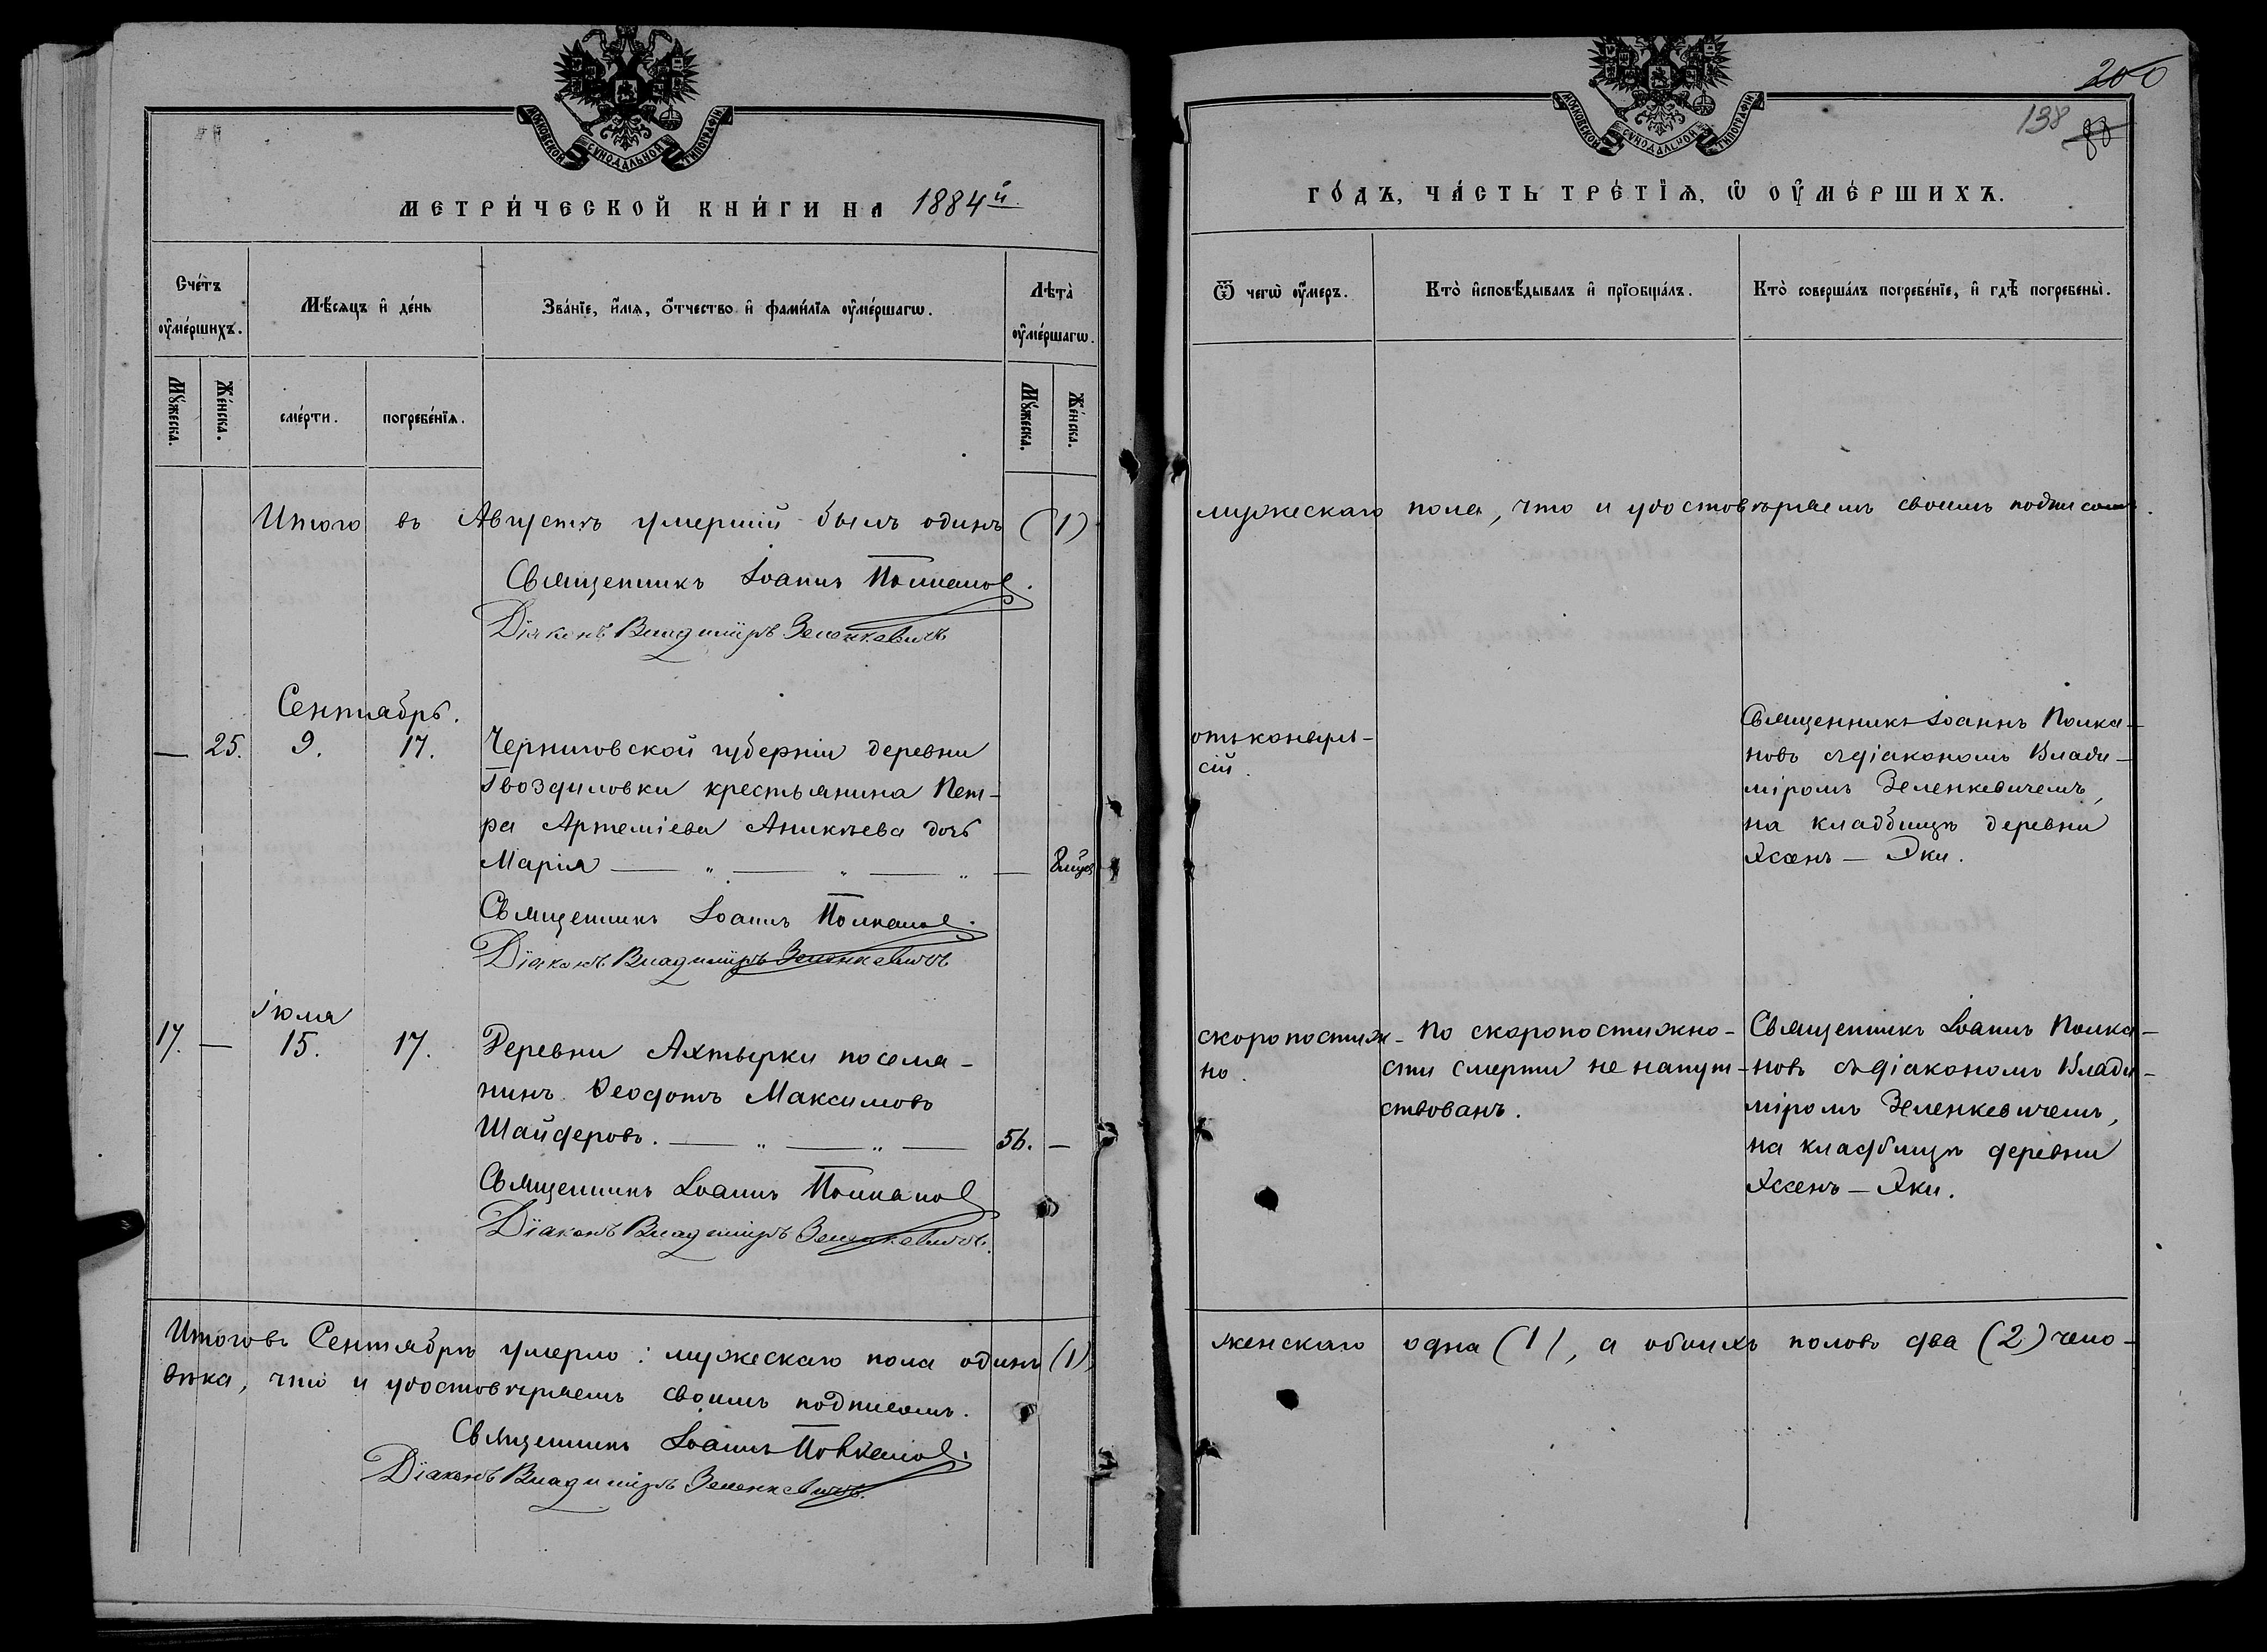 МОСКОВСКОЙ СѴНОДАЛЬНОЙ ТИПОГРАФІИ
МЕТРИ́ЧЕСКОЙ КНИ́ГИ НА 1884й
Сче́тъ ᲂу҆ме́ршихъ.
Мѣ́сяцъ и҆ де́нь
Зва́нїе, и҆́мѧ, ѻ҆́тчество и҆ фами́лїѧ ᲂу҆ме́ршагѡ.
Лѣта̀ ᲂу҆ме́ршагѡ.
Мꙋ́жеска.
Же́нска.
сме́рти.
погребе́нїѧ.
Мꙋ́жеска.
Же́нска.
Итого въ Августѣ умершій былъ одинъ (1)
Священникъ Іоаннъ Полкановъ.
Діаконъ Владиміръ Зеленкевичъ
Сентябрь.
— 25. 9. 17. Черниговской губерніи деревни
Гвоздиловки крестьянина Пет-
ра Артеміева Аникѣева дочь
Марія — „ — „ — „ —
Священникъ Іоаннъ Полкановъ.
Діаконъ Владиміръ Зеленкевичъ
Іюля
17. — 15. 17. Деревни Ахтырки поселя-
нинъ Ѳеодотъ Максимовъ
Шайдеровъ. — „ — „ — 56. —
Священникъ Іоаннъ Полкановъ
Діаконъ Владиміръ Зеленкевичъ.
Итого въ Сентябрѣ умерло: мужескаго пола одинъ (1),
вѣка, что и удостовѣряемъ своимъ подписомъ.
Священникъ Іоаннъ Полкановъ.
Діаконъ Владиміръ Зеленкевичъ.
200
138
80
МОСКОВСКОЙ СѴНОДАЛЬНОЙ ТИПОГРАФІИ
ГО́ДЪ, ЧА́СТЬ ТРЕ́ТЇѦ, Ѡ҆ ОУ҆МЕ́РШИХЪ.
Ѿ чегѡ̀ ᲂу҆́меръ.
Кто̀ и҆сповѣ́дывалъ и҆ прїобща́лъ.
Кто̀ соверша́лъ погребе́нїе, и҆ гдѣ̀ погребены̀.
мужескаго пола, что и удостовѣряемъ своимъ подписомъ.
отъ конвуль-
сій.
Священникъ Іоаннъ Полка-
новъ съ діакономъ Влади-
міромъ Зеленкевичемъ,
на кладбищѣ деревни
скоропостиж-
но.
По скоропостижно-
сти смерти не напут-
ствованъ.
Священникъ Іоаннъ Полка-
новъ съ діакономъ Влади-
міромъ Зеленкевичемъ,
на кладбищѣ деревни
женскаго одна (1), а обоихъ половъ два (2) чело-